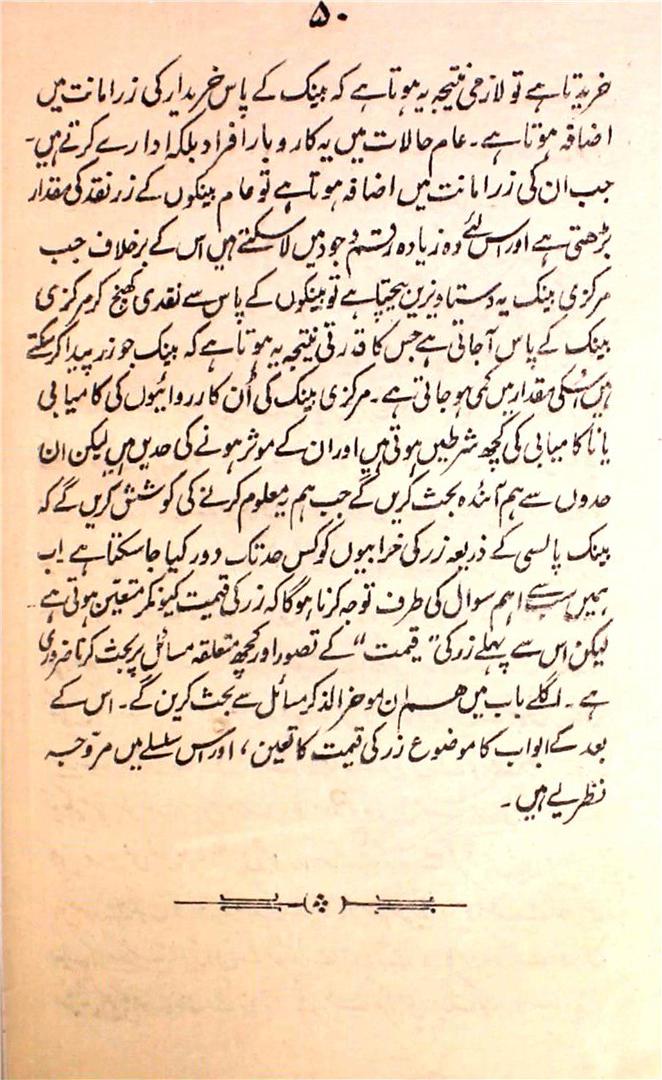 ۵۰
خریدتا ہے تو لازمی نتیجہ یہ ہوتا ہے کہ بینک کے پاس خریدار کی زر امانت میں
اضافہ ہوتا ہے۔ عام حالات میں یہ کاروبار افراد بلکہ ادارے کرتے ہیں۔
جب ان کی زر امانت میں اضافہ ہوتا ہے تو عام بینکوں کے زر نقد کی مقدار
بڑھتی ہے اور اس لئے وہ زیادہ رقم وجود میں لا سکتے ہیں اس کے برخلاف جب
مرکزی بینک یہ دستاویزیں بیچتا ہے تو بینکوں کے پاس سے نقدی کھنچ کر مرکزی
بینک کے پاس آ جاتی ہے جس کا قدرتی نتیجہ یہ ہوتا ہے کہ بینک جو زر پیدا کر سکتے
ہیں اسکی مقدار میں کمی ہو جاتی ہے۔ مرکزی بینک کی اُن کارروائیوں کی کامیابی
یا ناکامیابی کی کچھ شرطیں ہوتی ہیں اور ان کے موثر ہونے کی حدیں ہیں لیکن ان
حدوں سے ہم آئندہ بحث کریں گے جب ہم یہ معلوم کرنے کی کوشش کریں گے کہ
بینک پالسی کے ذریعہ زر کی خرابیوں کو کس حد تک دور کیا جا سکتا ہے اب
ہمیں سب سے اہم سوال کی طرف توجہ کرنا ہوگا کہ زر کی قیمت کیونکر متعین ہوتی ہے
لیکن اس سے پہلے زر کی "قیمت" کے تصور اور کچھ متعلقہ مسائل پر بحث کرنا ضروری
ہے۔ اگلے باب میں ہم ان موخر الذکر مسائل سے بحث کرین گے۔ اس کے
بعد کے ابواب کا موضوع زر کی قیمت کا تعین، اور اس سلسلے میں مروّجہ
نظریے ہیں۔